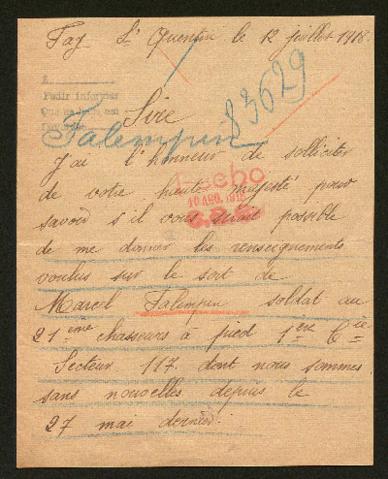 Fay St Quentin le 12 juillet 1918
A
Pedir informes
Sire
83629
Falempin
J'ai l'honneur de solliciter
de votre haute majesté pour
10 AGO. 1918
savoir s'il vous serait possible
de me donner les renseignements
voulus sur le sort de
Marcel Falempin soldat au
21ème chasseurs à pied 1ere Cie
Secteur 117. dont nous sommes
sans nouvelles depuis le
27 mai dernier.